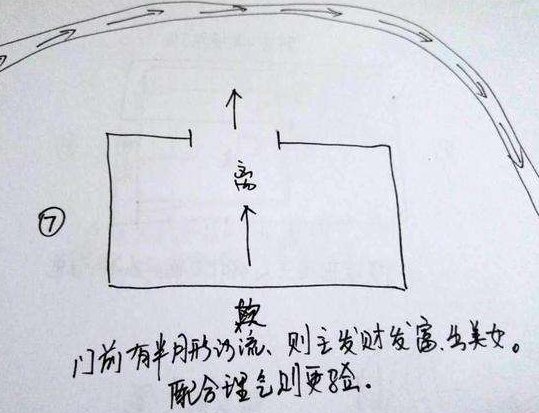 离
⑦
门前有半月形河流、则主发财发富、出美女。
配合理气则更验。